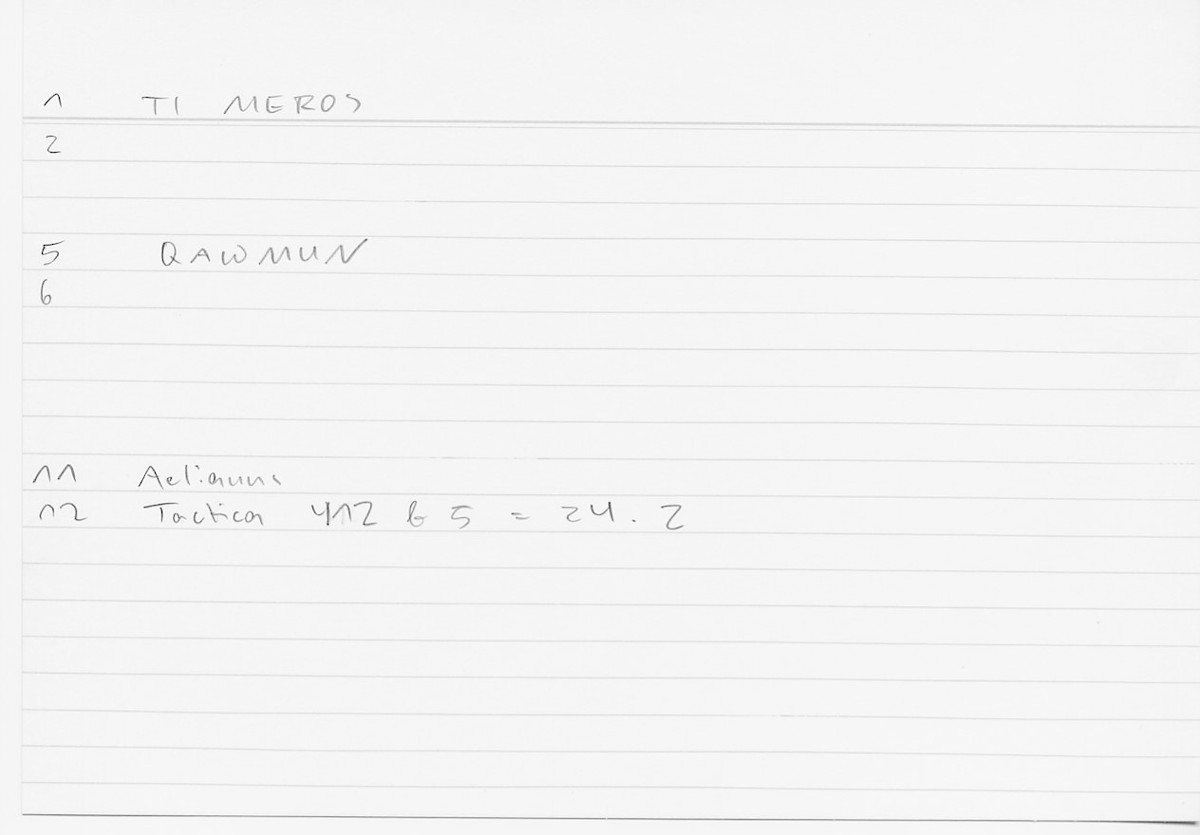 1 TI MEROS
2
5 QAWMUN
6
11 Aelianus
12 Tactica 412 b 5 = 24.2